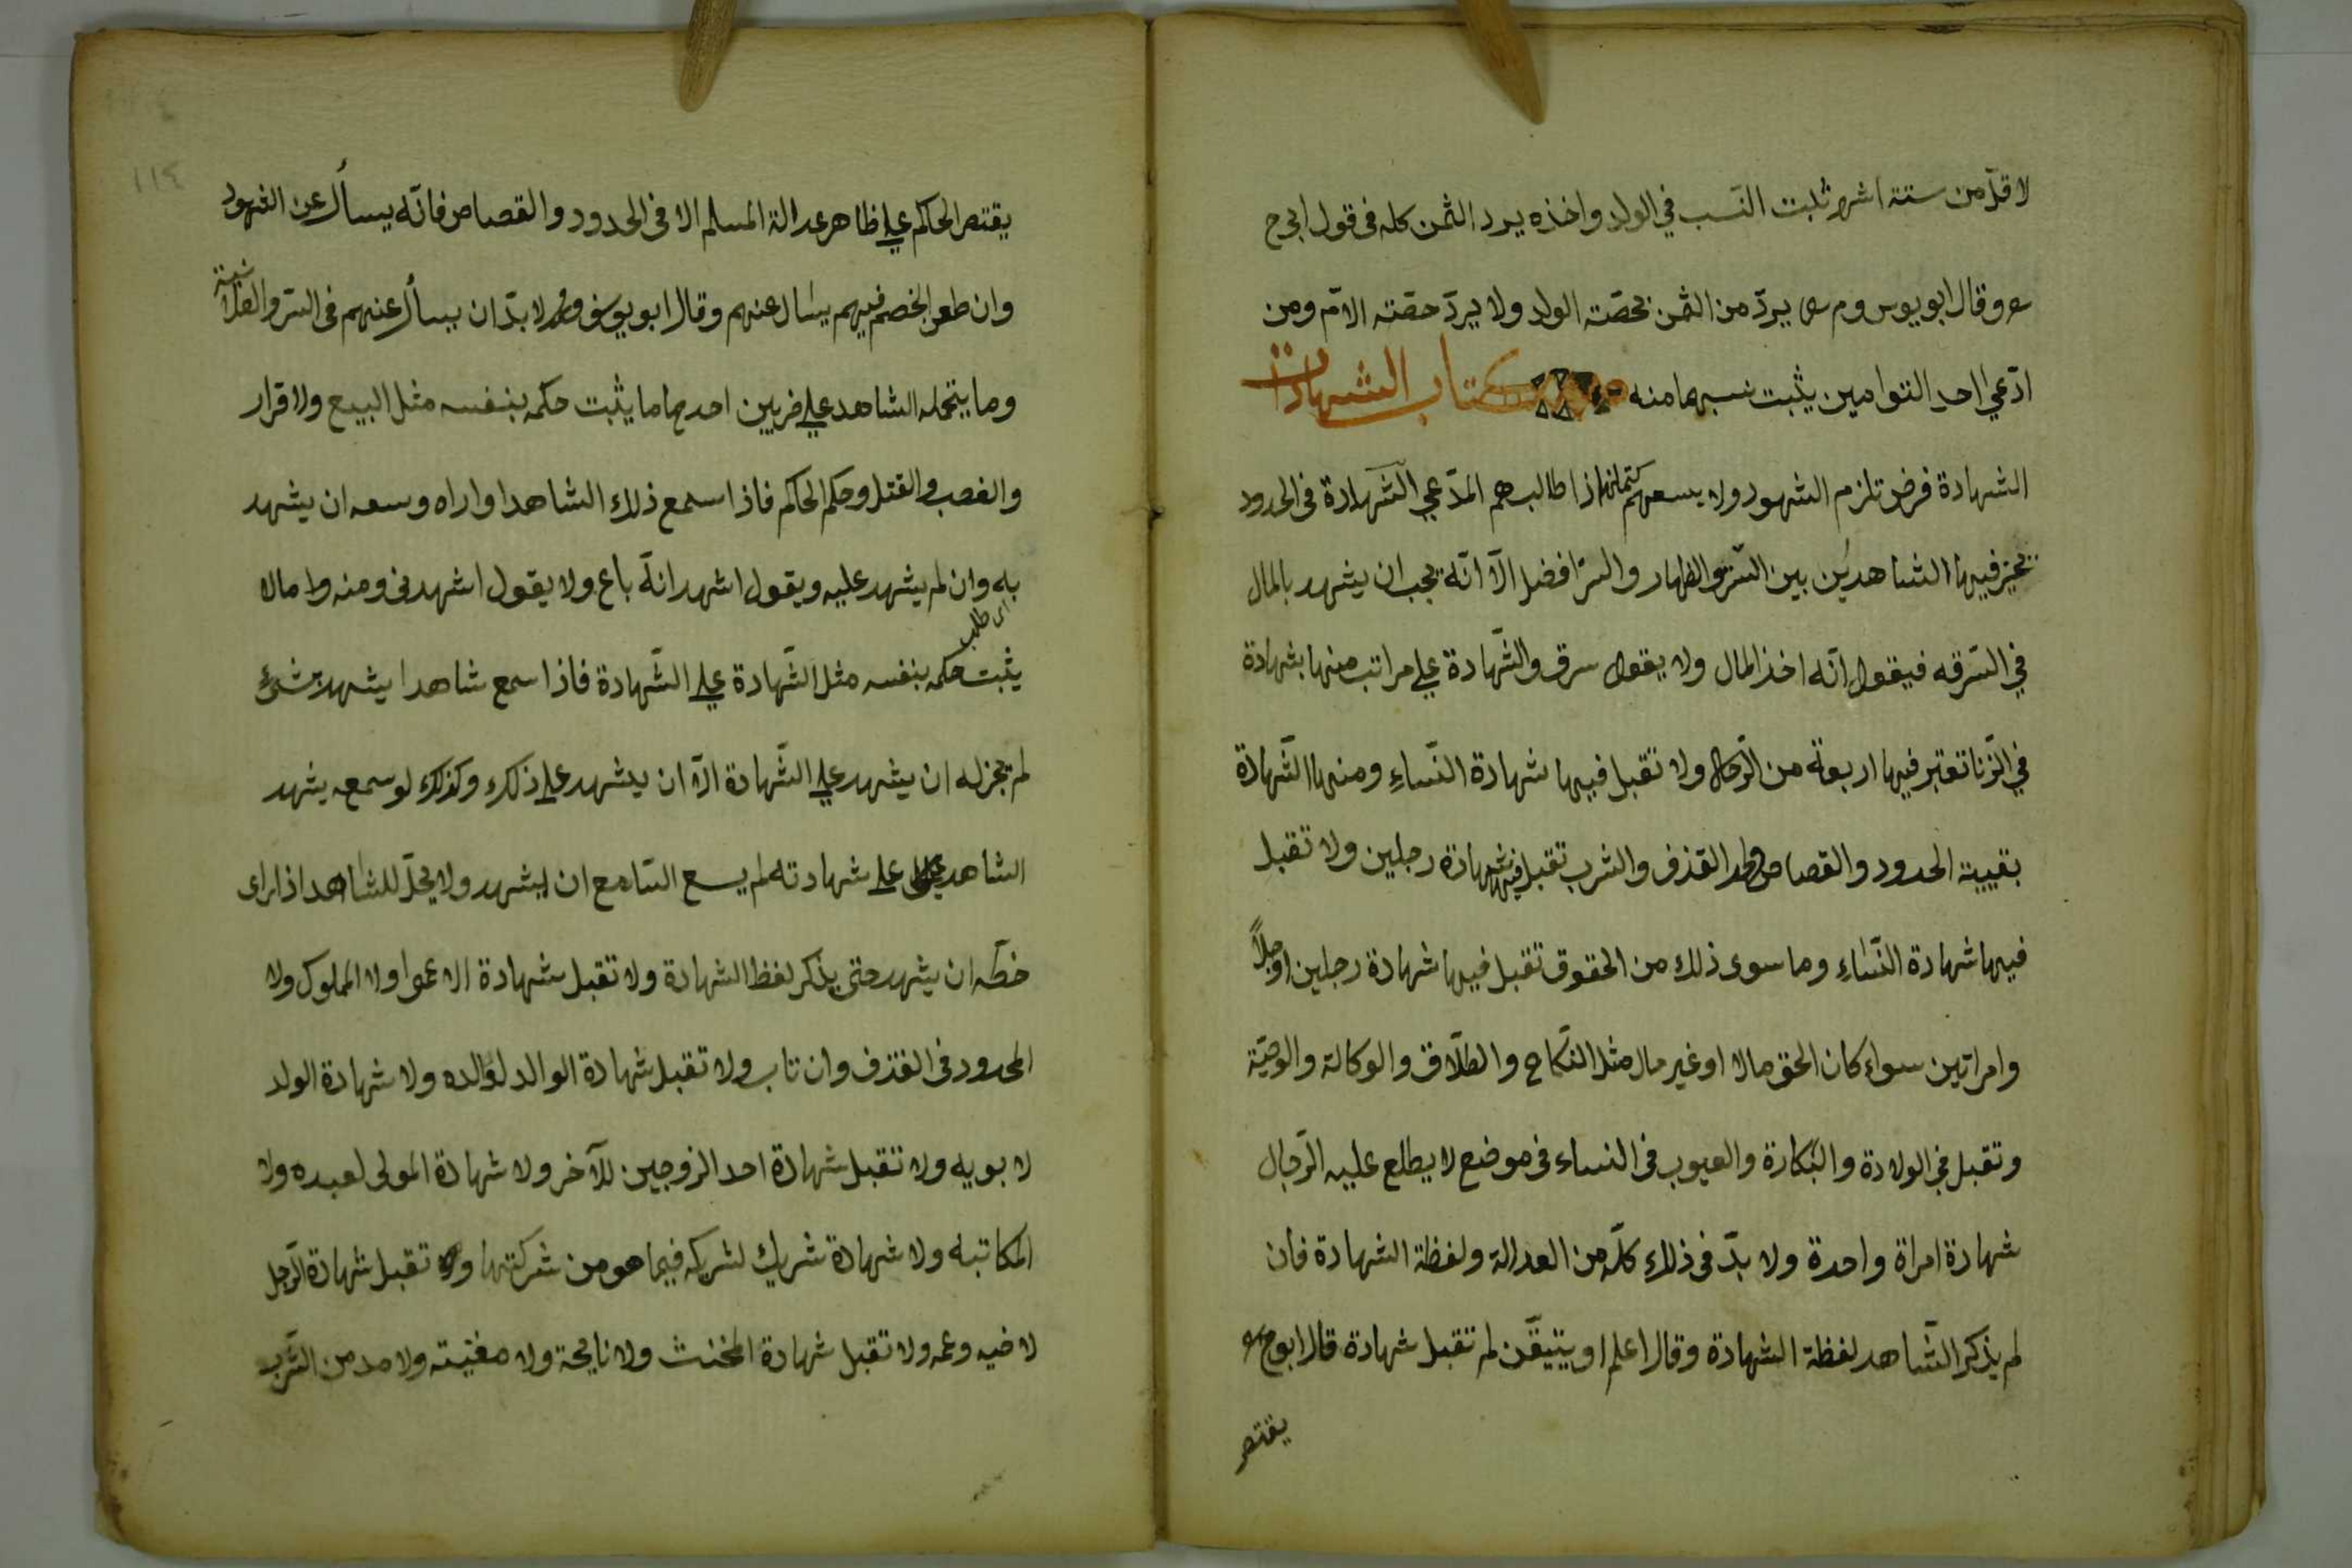 لاقلّ من ستة اشهر ثبت النسب في الولد واخذه يرد الثمن كله فى قول ابى ح
وقال ابو يوس وم يردّ من الثمن بحصّته الولد ولا يردّ حصّته الامّ ومن
ادّعي احد التوامين يثبت نسبهما منه كتاب الشهادات
الشهادة فرض تلزم الشهود ولا يسعهم كتمانها اذا طالبهم المدّعي الشّهادة فى الحدود
يخيّر فيها الشاهدين بين السّتر والظهار والسترّ افضل الاّ انّه يجب ان يشهد بالمال
في السّرقه فيقول انّه اخذ المال ولا يقول سرق والشّهادة علي مراتب منها بشهادة
في الزّنا تعتبر فيها اربعة من الرّجال ولا تقبل فيها شهادة النّساءِ ومنها الشّهادة
بقيية الحدود والقصاص وحد القذف والشرب تقبل فيها شهادة رجلين ولا تقبل
فيها شهادة النّساءِ وما سوى ذلك من الحقوق تقبل فيها شهادة رجلين او رجلاً
وامراتين سواء كان الحق مالا او غير مال مثل النّكاح والطّلاق والوكالة والوصيّة
وتقبل في الولادة والبكارة والعيوب فى النساء فى موضع لا يطلع عليه الرّجال
شهادة امراة واحدة ولا بدّ فى ذلك كلّه من العدالة ولفظة الشهادة فان
لم يذكر الشّاهد لفظة الشهادة وقال اعلم او يتيقّن لم تقبل شهادة قال ابو ح
يقتصر
١١٤
يقتصر الحاكم علي ظاهر عدالة المسلم الا فى الحدود والقصاص فانّه يسأل عن الشهود
وان طعن الخصم فيهم يسال عنهم وقال ابو يوسف ومحمد لا بدّ ان يسأل عنهم فى السّر والعلانية
وما يتحمله الشاهد علي ضربين احدهما ما يثبت حكمه بنفسه مثل البيع والاقرار
والغصب والقتل وحكم الحاكم فاذا سمع ذلك الشاهد او اراه وسعه ان يشهد
به وان لم يشهد عليه ويقول اشهد انّه باع ولا يقول اشهدنى ومنه وما مالا
اى طلب
يثبت حكمه بنفسه مثل الشّهادة علي الشّهادة فاذا سمع شاهدا يشهد بشئ
لم يجز له ان يشهد علي الشّهادة الاّ ان يشهد علي ذلك وكذلك لو سمعه يشهد
الشاهد علي شهادته لم يسع السّامع ان يشهد ولا يحلّ للشاهد اذا راى
خطّه ان يشهد حتى يذكر لفظ الشهادة ولا تقبل شهادة الاعموا ولا المملوك ولا
المحدود فى القذف وان تاب ولا تقبل شهادة الوالد لوالده ولا شهادة الولد
لابويه ولا تقبل شهادة احد الزوجين للآخر ولا شهادة المولى لعبده ولا
المكاتبه ولا شهادة شريك لشريكه فيما هو من شركتها و تقبل شهادة الرّجل
لاخيه وعمه ولا تقبل شهادة المخنث ولا نايحة ولا مغنيّته ولا مدمن الشّرب